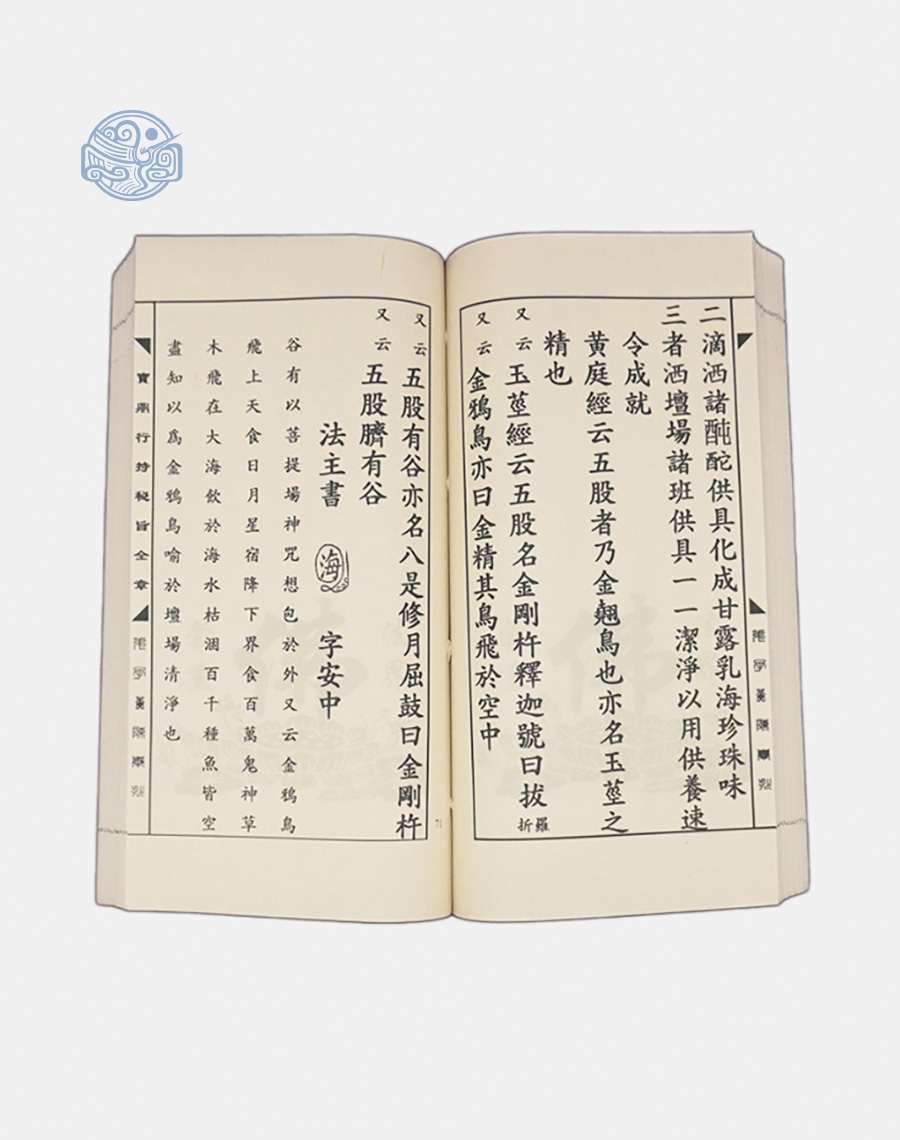 二滴洒諸酏酡供具化成甘露乳海珍珠味
三者洒壇場諸班供具一一潔淨以用供養速
令成就
黃庭經云五股者乃金翹鳥也亦名玉莖之
精也
又云玉莖經云五股名金剛杵釋迦號曰拔折羅
又云金鴉鳥亦曰金精其鳥飛於空中
又云五股有谷亦名八是修月屈鼓曰金剛杵
又云五股臍有谷
法主書 海 字安中
谷有以菩提場神咒想包於外又云金鴉鳥
飛上天食日月星宿降下界食百萬鬼神草
木飛在大海飲於海水枯涸百千種魚皆空
盡知以為金鴉鳥喻於壇場清淨也
寶鼎行持秘旨全章
71